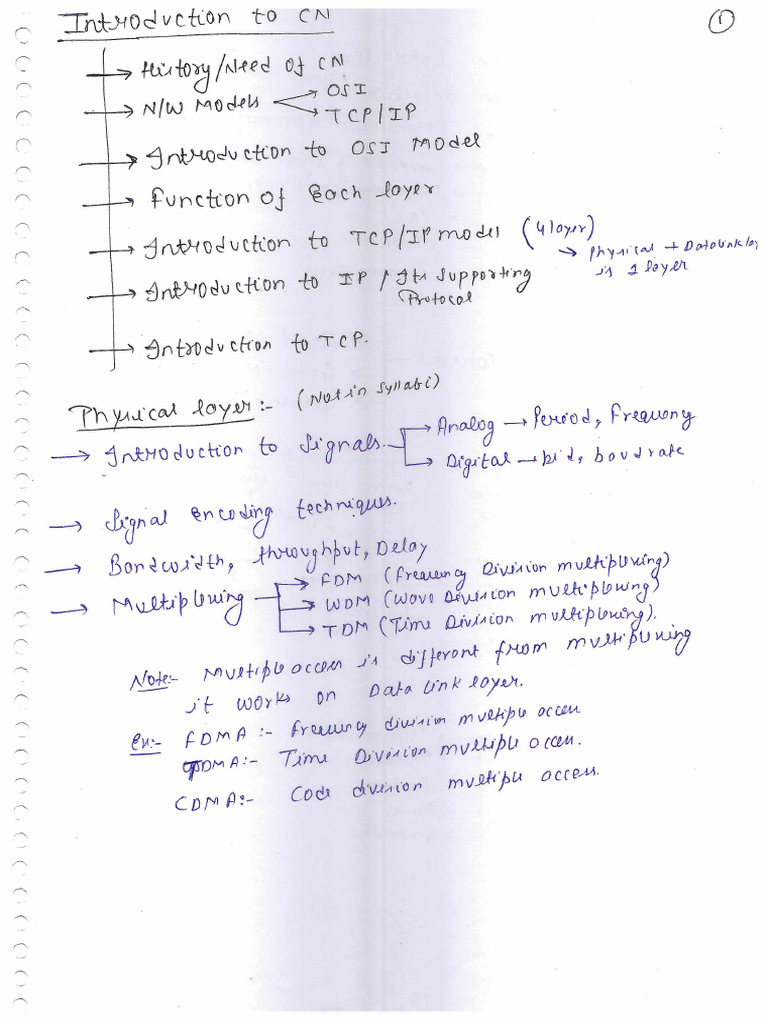 Introduction to CN
1
→ History/Need of CN
→ N/W Models → OSI
→ TCP/IP
→ Introduction to OSI Model
→ Function of Each layer
→ Introduction to TCP/IP model (4 layer)
→ Physical + Datalink lay
is 1 layer
→ Introduction to IP / Its supporting
Protocol
→ Introduction to TCP.
Physical layer :- (Not in Syllabi)
→ Introduction to Signals. → Analog → Period, Frequency
→ Digital → bid, baud rate
→ Signal encoding techniques.
→ Bandwidth, throughput, Delay
→ Multiplexing → FDM (Frequency Division multiplexing)
→ WDM (Wave Division multiplexing)
→ TDM (Time Division multiplexing).
Note:- Multiple access is different from multiplexing
it works on Data link layer.
Ex:- FDMA :- frequency division multiple access
TDMA :- Time Division multiple access.
CDMA :- Code division multiple access.